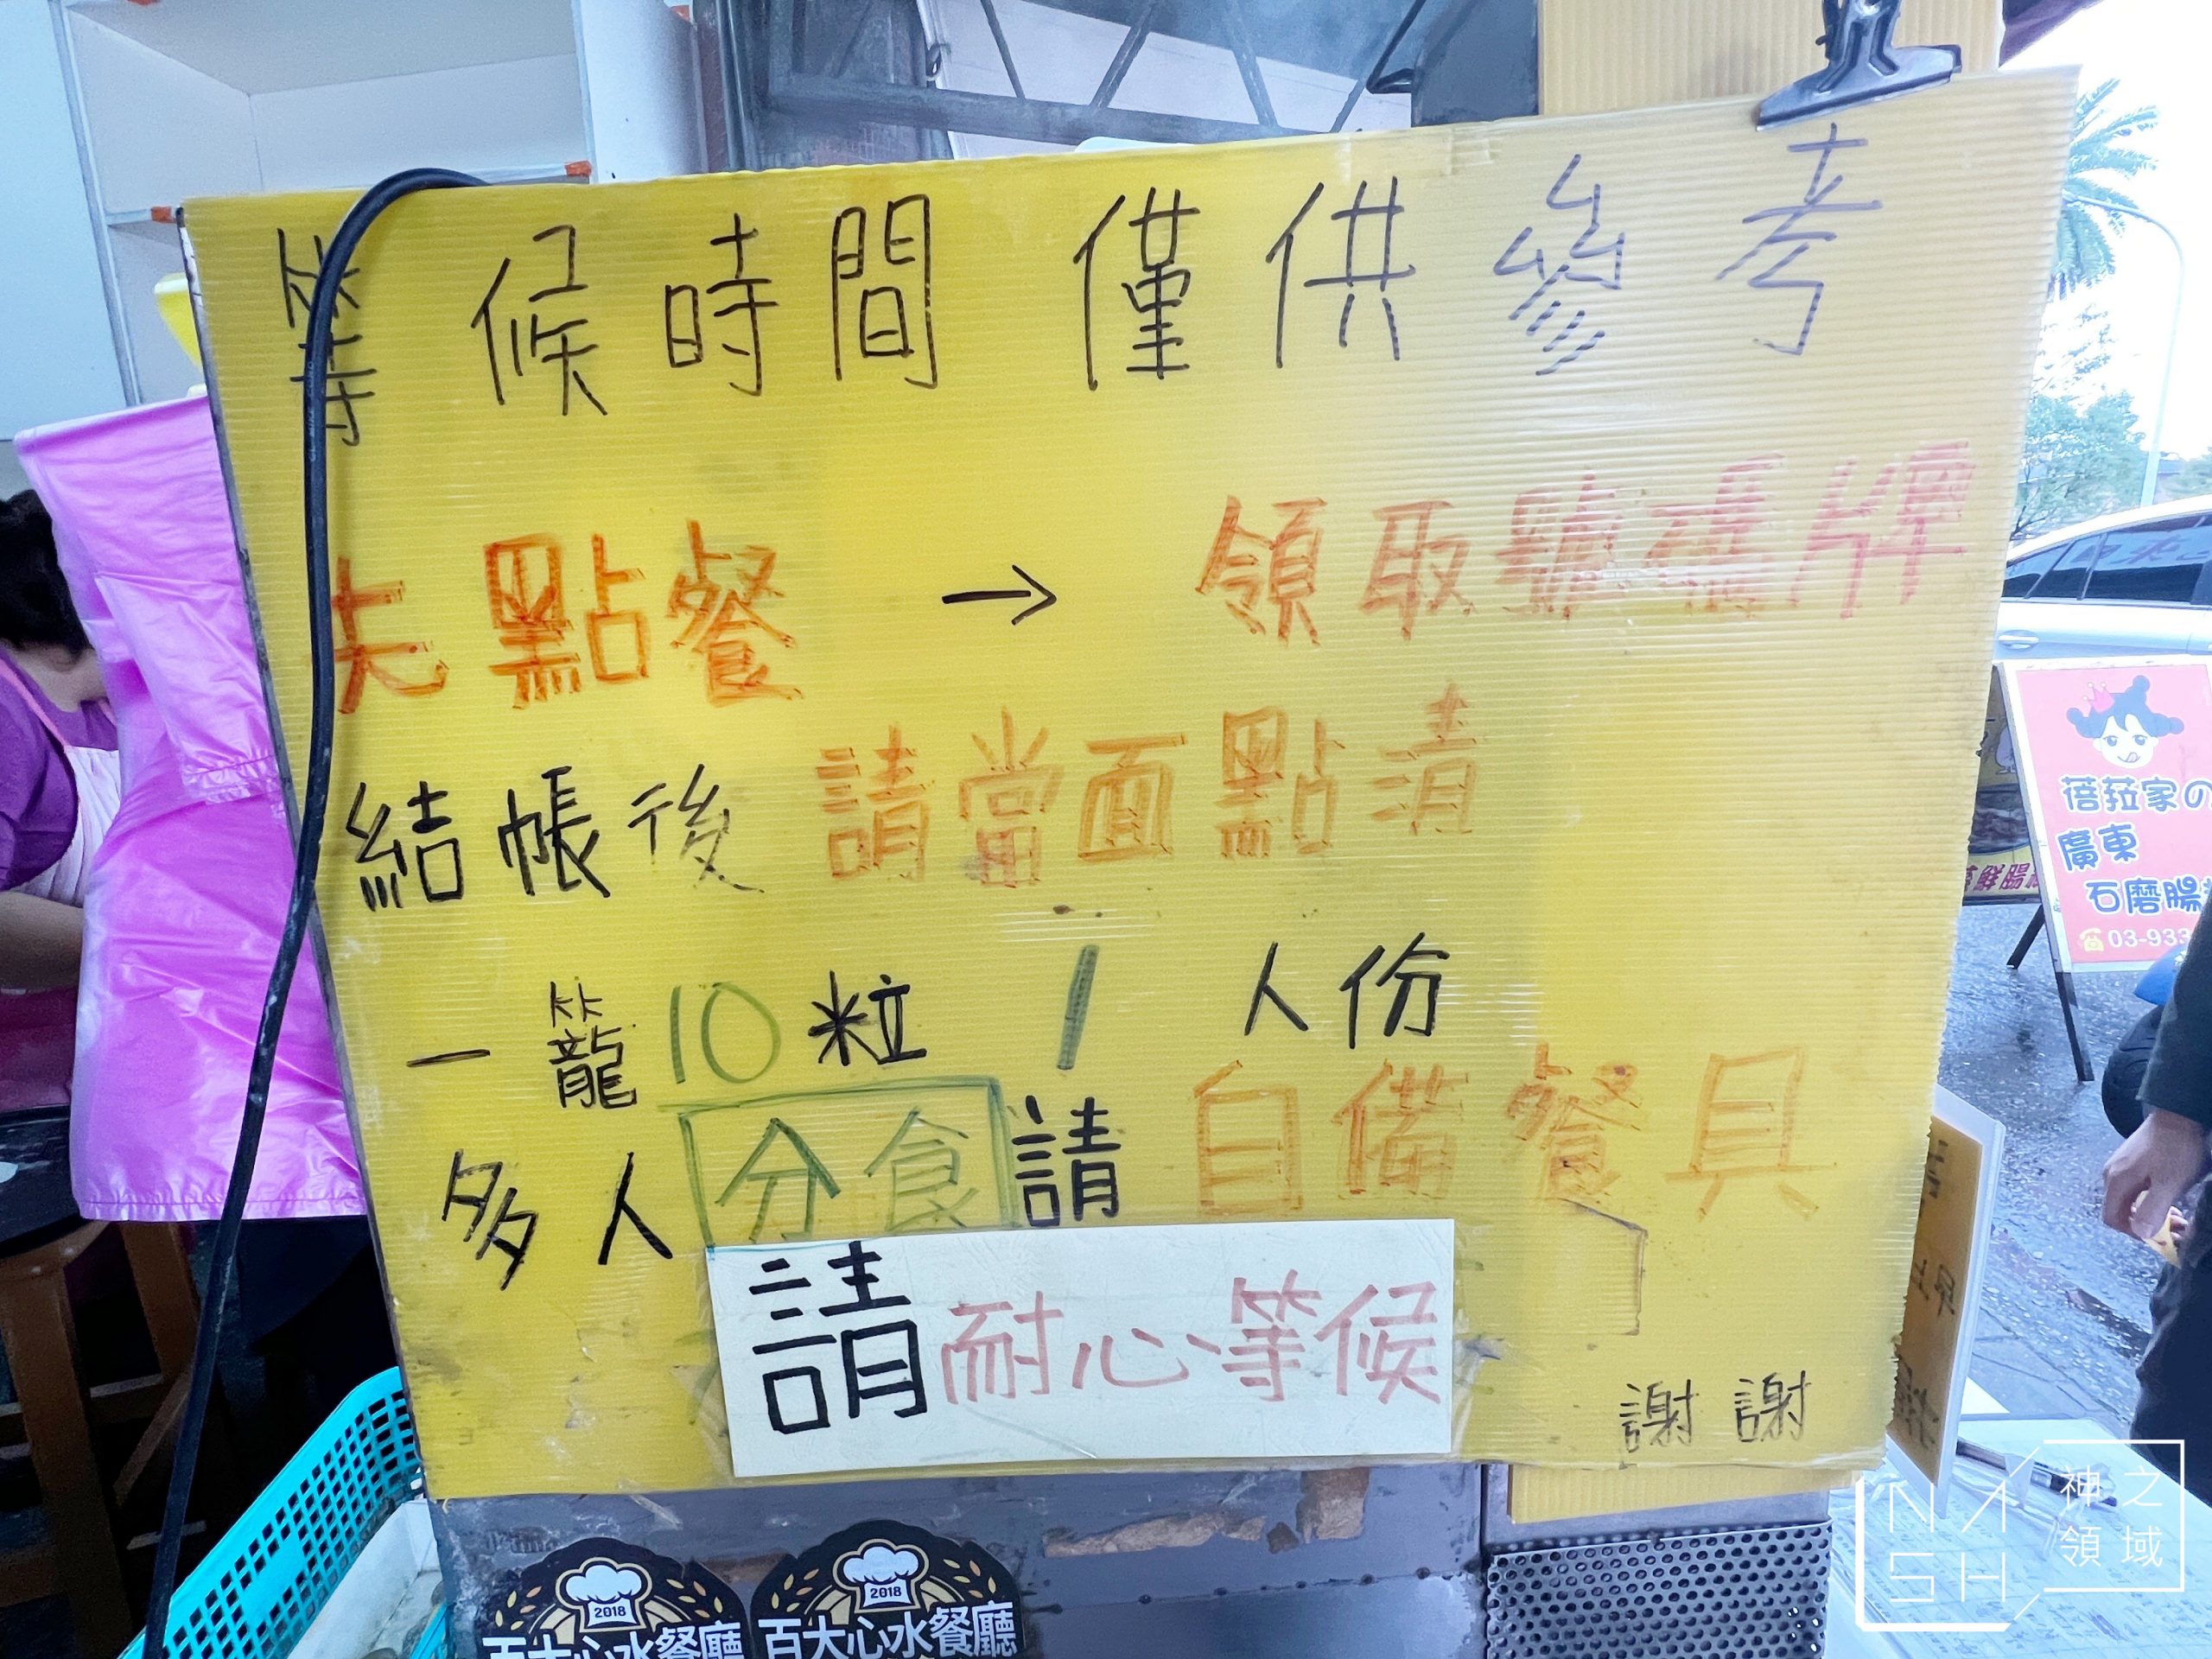 等候時間 僅供參考
先點餐 → 領取號碼牌
結帳後 請當面點清
一籠10粒 1 人份
多人分食請自備餐具
請耐心等候
謝謝
蓓菈家の
廣東
石磨腸
鮮腸
03-933
2018
百大心水餐廳
2018
百大心水餐廳
NASH
神之領域